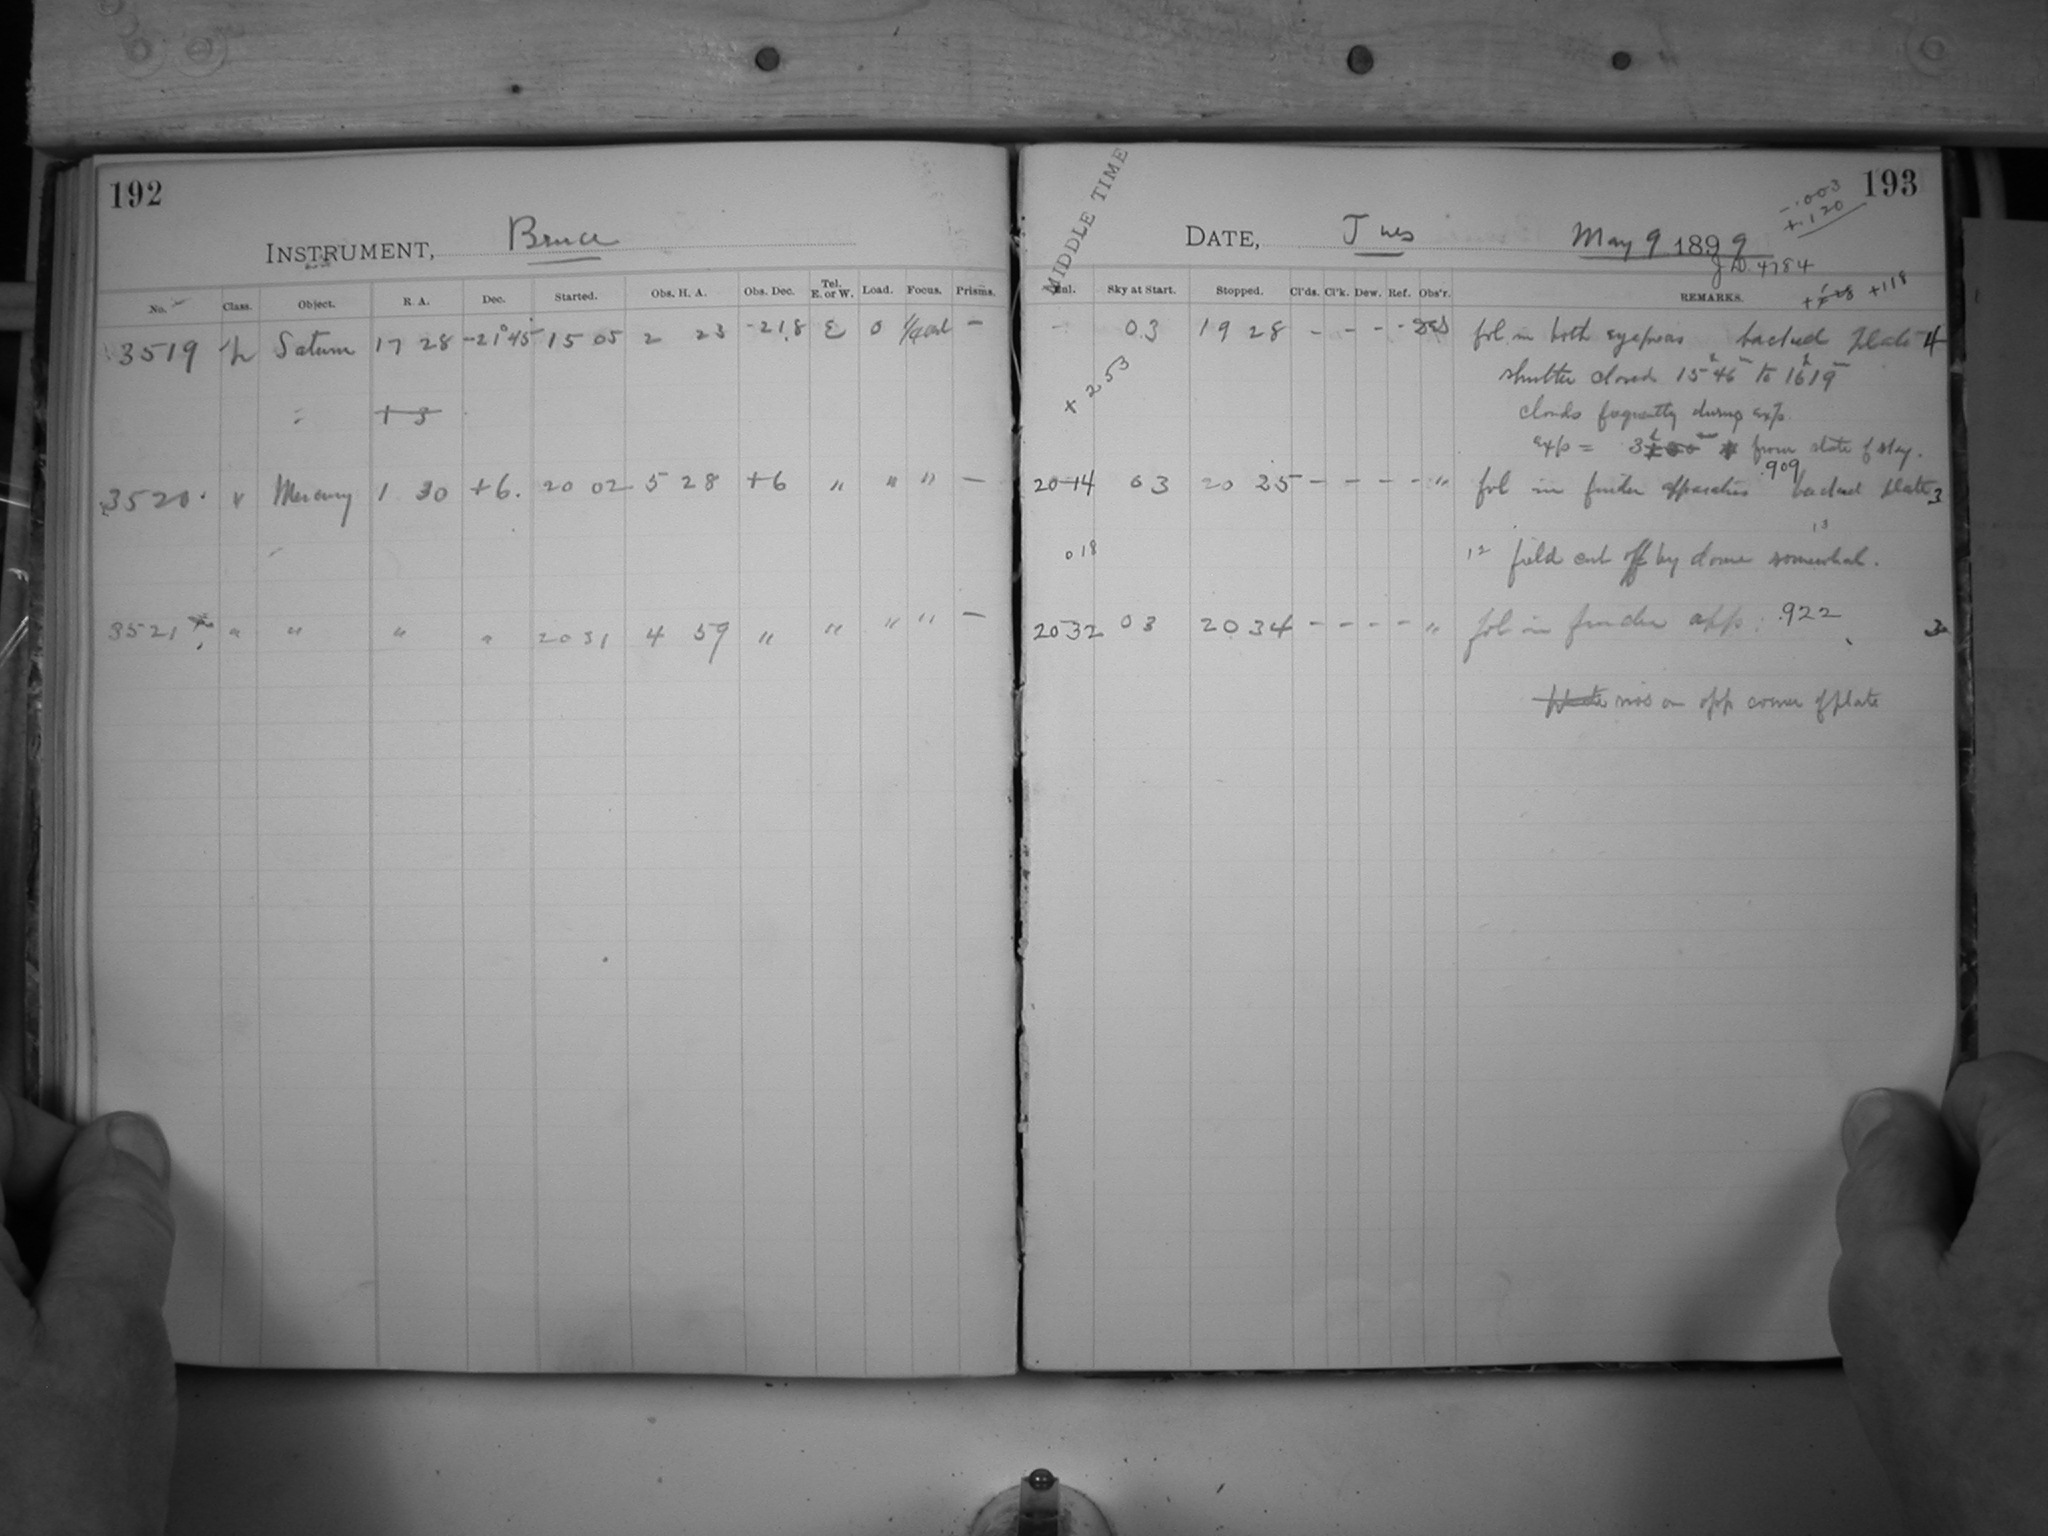 192
INSTRUMENT, Bruce
No. Class. Object. R. A. Dec. Started. Obs. H. A. Obs. Dec. Tel. E. or W. Load. Focus. Prisms.
3519 Saturn 17 28 -21°45' 15 05 2 23 -21.8 E 0 –
+ 3
3520 Mercury 1 30 +6. 20 02 5 28 +6 " " " –
3521 " " " " 20 31 4 59 " " " " –
193
MIDDLE TIME
-.003
+.120
DATE, Tues May 9 1899
J.D. 4784
Sky at Start. Stopped. Cl'ds. Cl'k. Dew. Ref. Obs'r. REMARKS.
+118
– 03 19 28 – – – – fol. in both eyepieces backed plate 4
+253
shutter closed 15h 46m to 16h 19m
clouds frequently during exp.
exp = 3 from state of sky.
20 14 03 20 25 – – – – " fol in finder apparatus .909 backed plate 3
13
018
12 field cut off by dome somewhat.
20 32 03 20 34 – – – – " fol in finder app. .922 3
nos on opp corner of plate